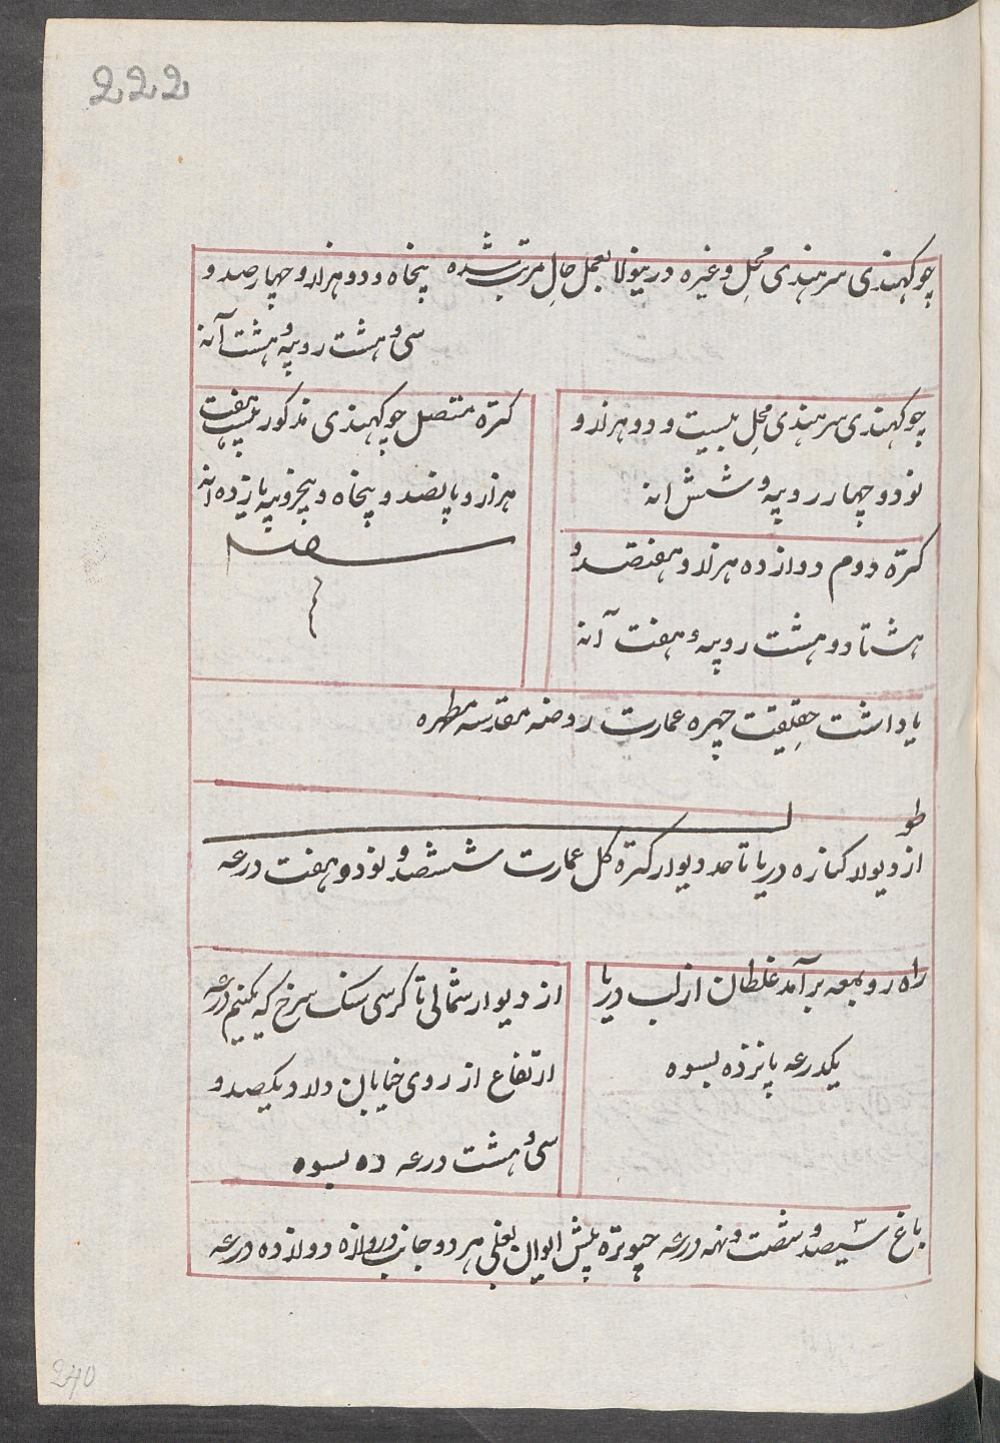 222
چوکهندی سرهندی محل وغیره درینولا بعمل حال مرتب شده پنجاه و دو هزار و چهار صد و
سی و هشت روپیه و هشت آنه
چوکهندی سرهندی محل بیست و دو هزار و
نود و چهار روپیه و شش انه
کتره دوم دوازده هزار و هفتصد و
هشتاد و هشت روپیه و هفت آنه
کتره متصل چوکهندی مذکور بیست هفت
هزار و پانصد و پنجاه و پنجروپیه یازده انه
یاداشت حقیقت چهره عمارت روضه مقدسه مطهره
طو ل
از دیوار کناره دریا تا حد دیوار کتره کل عمارت ششصد و نود و هفت درعه
راه رو بمعه برآمد غلطان از لب دریا
یکدرعه پانزده بسوه
از دیوار شمالی تا کرسی سنک سرخ که یکنیم درعه
ارتفاع از روی خیابان دارد یکصد و
سی و هشت درعه ده بسوه
باغ سیصد و شصت و نه درعه چبوتره پیش ایوان بغلی هر دو جانب دروازه دوازده درعه
240